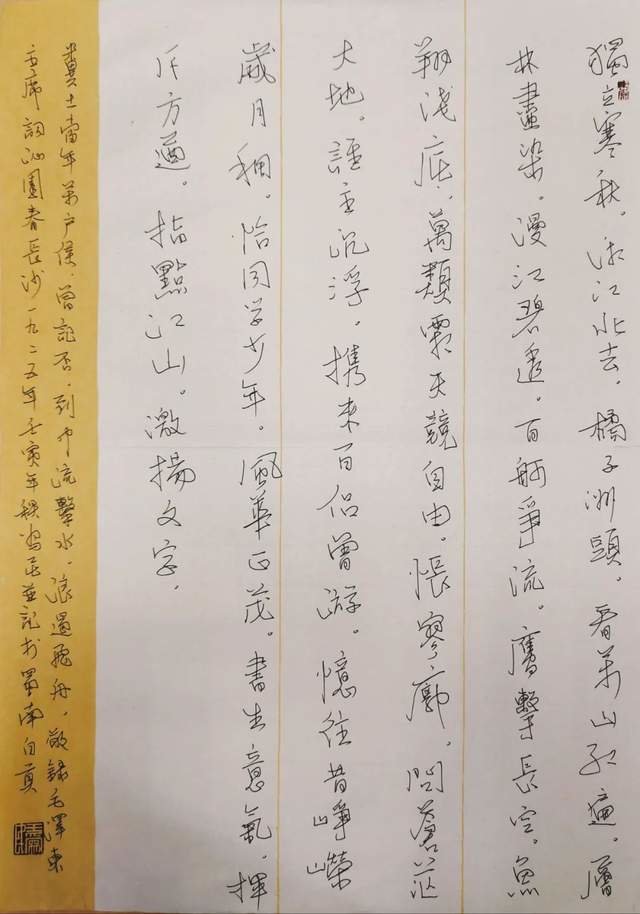 獨立寒秋。湘江北去。橘子洲頭。看萬山紅遍。層
林盡染。漫江碧透。百舸爭流。鷹擊長空。魚
翔淺底。萬類霜天競自由。悵寥廓。問蒼茫
大地。誰主沉浮。携來百侣曾游。憶往昔崢嶸
歲月稠。恰同学少年。風華正茂。書生意氣。揮
斥方遒。指點江山。激揚文字。
糞土當年萬户侯。曾記否。到中流擊水。浪遏飛舟。敬録毛澤東
主席詞沁園春長沙一九二五年壬寅年 並記於蜀南自貢